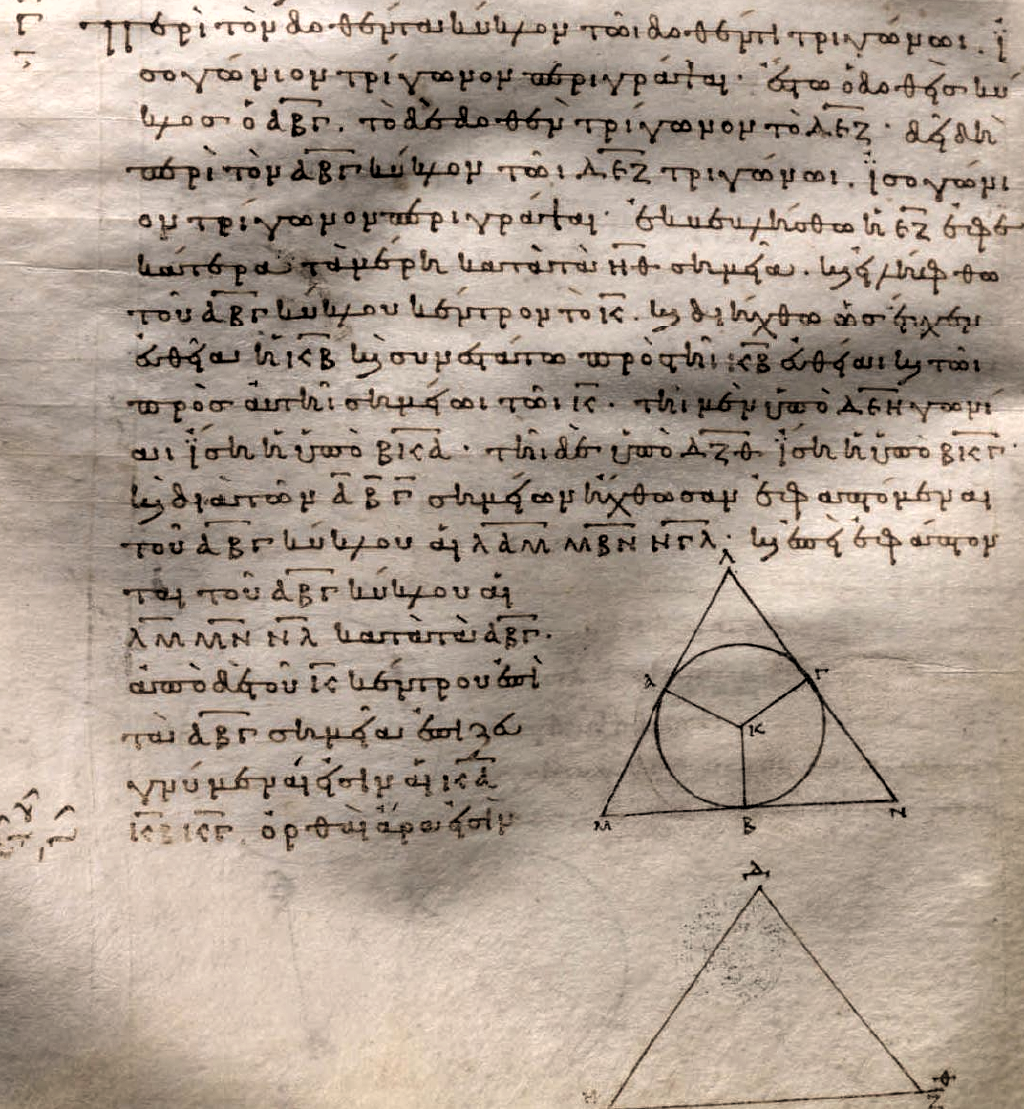 Γ Περὶ τὸν δοθέντα κύκλον τῶι δοθέντι τριγώνωι. ἰ
σογώνιον τρίγωνον περιγράψαι· ἔστω ὁ δοθεὶς κύ
κλος ὁ ΑΒΓ. τὸ δὲ δοθὲν τρίγωνον τὸ ΔΕΖ· δεῖ δὴ
περὶ τὸν ΑΒΓ κύκλον τῶι ΔΕΖ τριγώνωι. ἰσογώνι
ον τρίγωνον περιγράψαι· ἐκβεβλήσθω ἡ ΕΖ ἐφ ἑ
κάτερα τὰ μέρη κατὰ τὰ ΗΘ σημεῖα. κ εἰλήφθω
τοῦ ΑΒΓ κύκλου κέντρον τὸ Κ. κ διήχθω ὡς ἔτυχεν
εὐθεῖα ἡ ΚΒ κ συνεστάτω πρὸς τῆι ΚΒ εὐθείαι κ τῶι
πρὸς αὐτῆι σημείωι τῶι Κ. τῆι μὲν ὑπὸ ΔΕΗ γωνί
αι ἴση ἡ ὑπὸ ΒΚΑ· τῆι δὲ ὑπὸ ΔΖΘ ἴση ἡ ὑπὸ ΒΚΓ·
κ διὰ τῶν Α Β Γ σημείων ἤχθωσαν ἐφαπτόμεναι
τοῦ ΑΒΓ κύκλου αἱ ΛΑΜ ΜΒΝ ΝΓΛ· κ ἐπεὶ ἐφάπτον
ται τοῦ ΑΒΓ κύκλου αἱ
ΛΜ ΜΝ ΝΛ κατὰ τὰ ΑΒΓ.
ἀπὸ δὲ τοῦ Κ κέντρου ἐπὶ
τὰ ΑΒΓ σημεῖα ἐπιζευ
γνύμεναι εἰσὶν αἱ ΚΑ
ΚΒ ΚΓ. ὀρθαὶ ἄρα εἰσὶν
Λ
Α Γ
Κ
Μ Β Ν
Δ
Η Ζ Θ